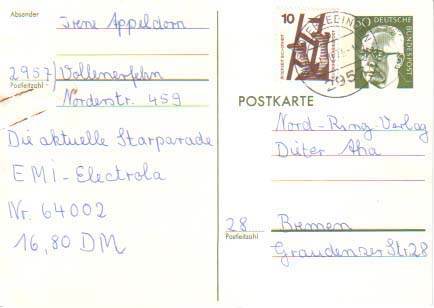 Absender
Irene Appeldorn
2957 Vollenerfehn
Postleitzahl
Norderstr. 459
Die aktuelle Starparade
EMI-Electrola
Nr. 64002
16,80 DM
10
DEUTSCHE BUNDESPOST
295
POSTKARTE
Nord-Ring-Verlag
Dieter Aha
28 Bremen
Postleitzahl
Graudenzer Str. 28